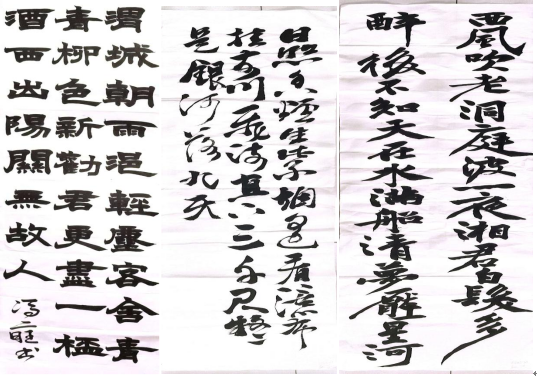 西風吹老洞庭波一夜湘君白髮多
醉後不知天在水滿船清夢壓星河
日照香爐生紫烟遥看瀑布
掛前川飛流直下三千尺疑
是銀河落九天
渭城朝雨浥輕塵客舍青
青柳色新勸君更盡一
酒西出陽關無故人
書